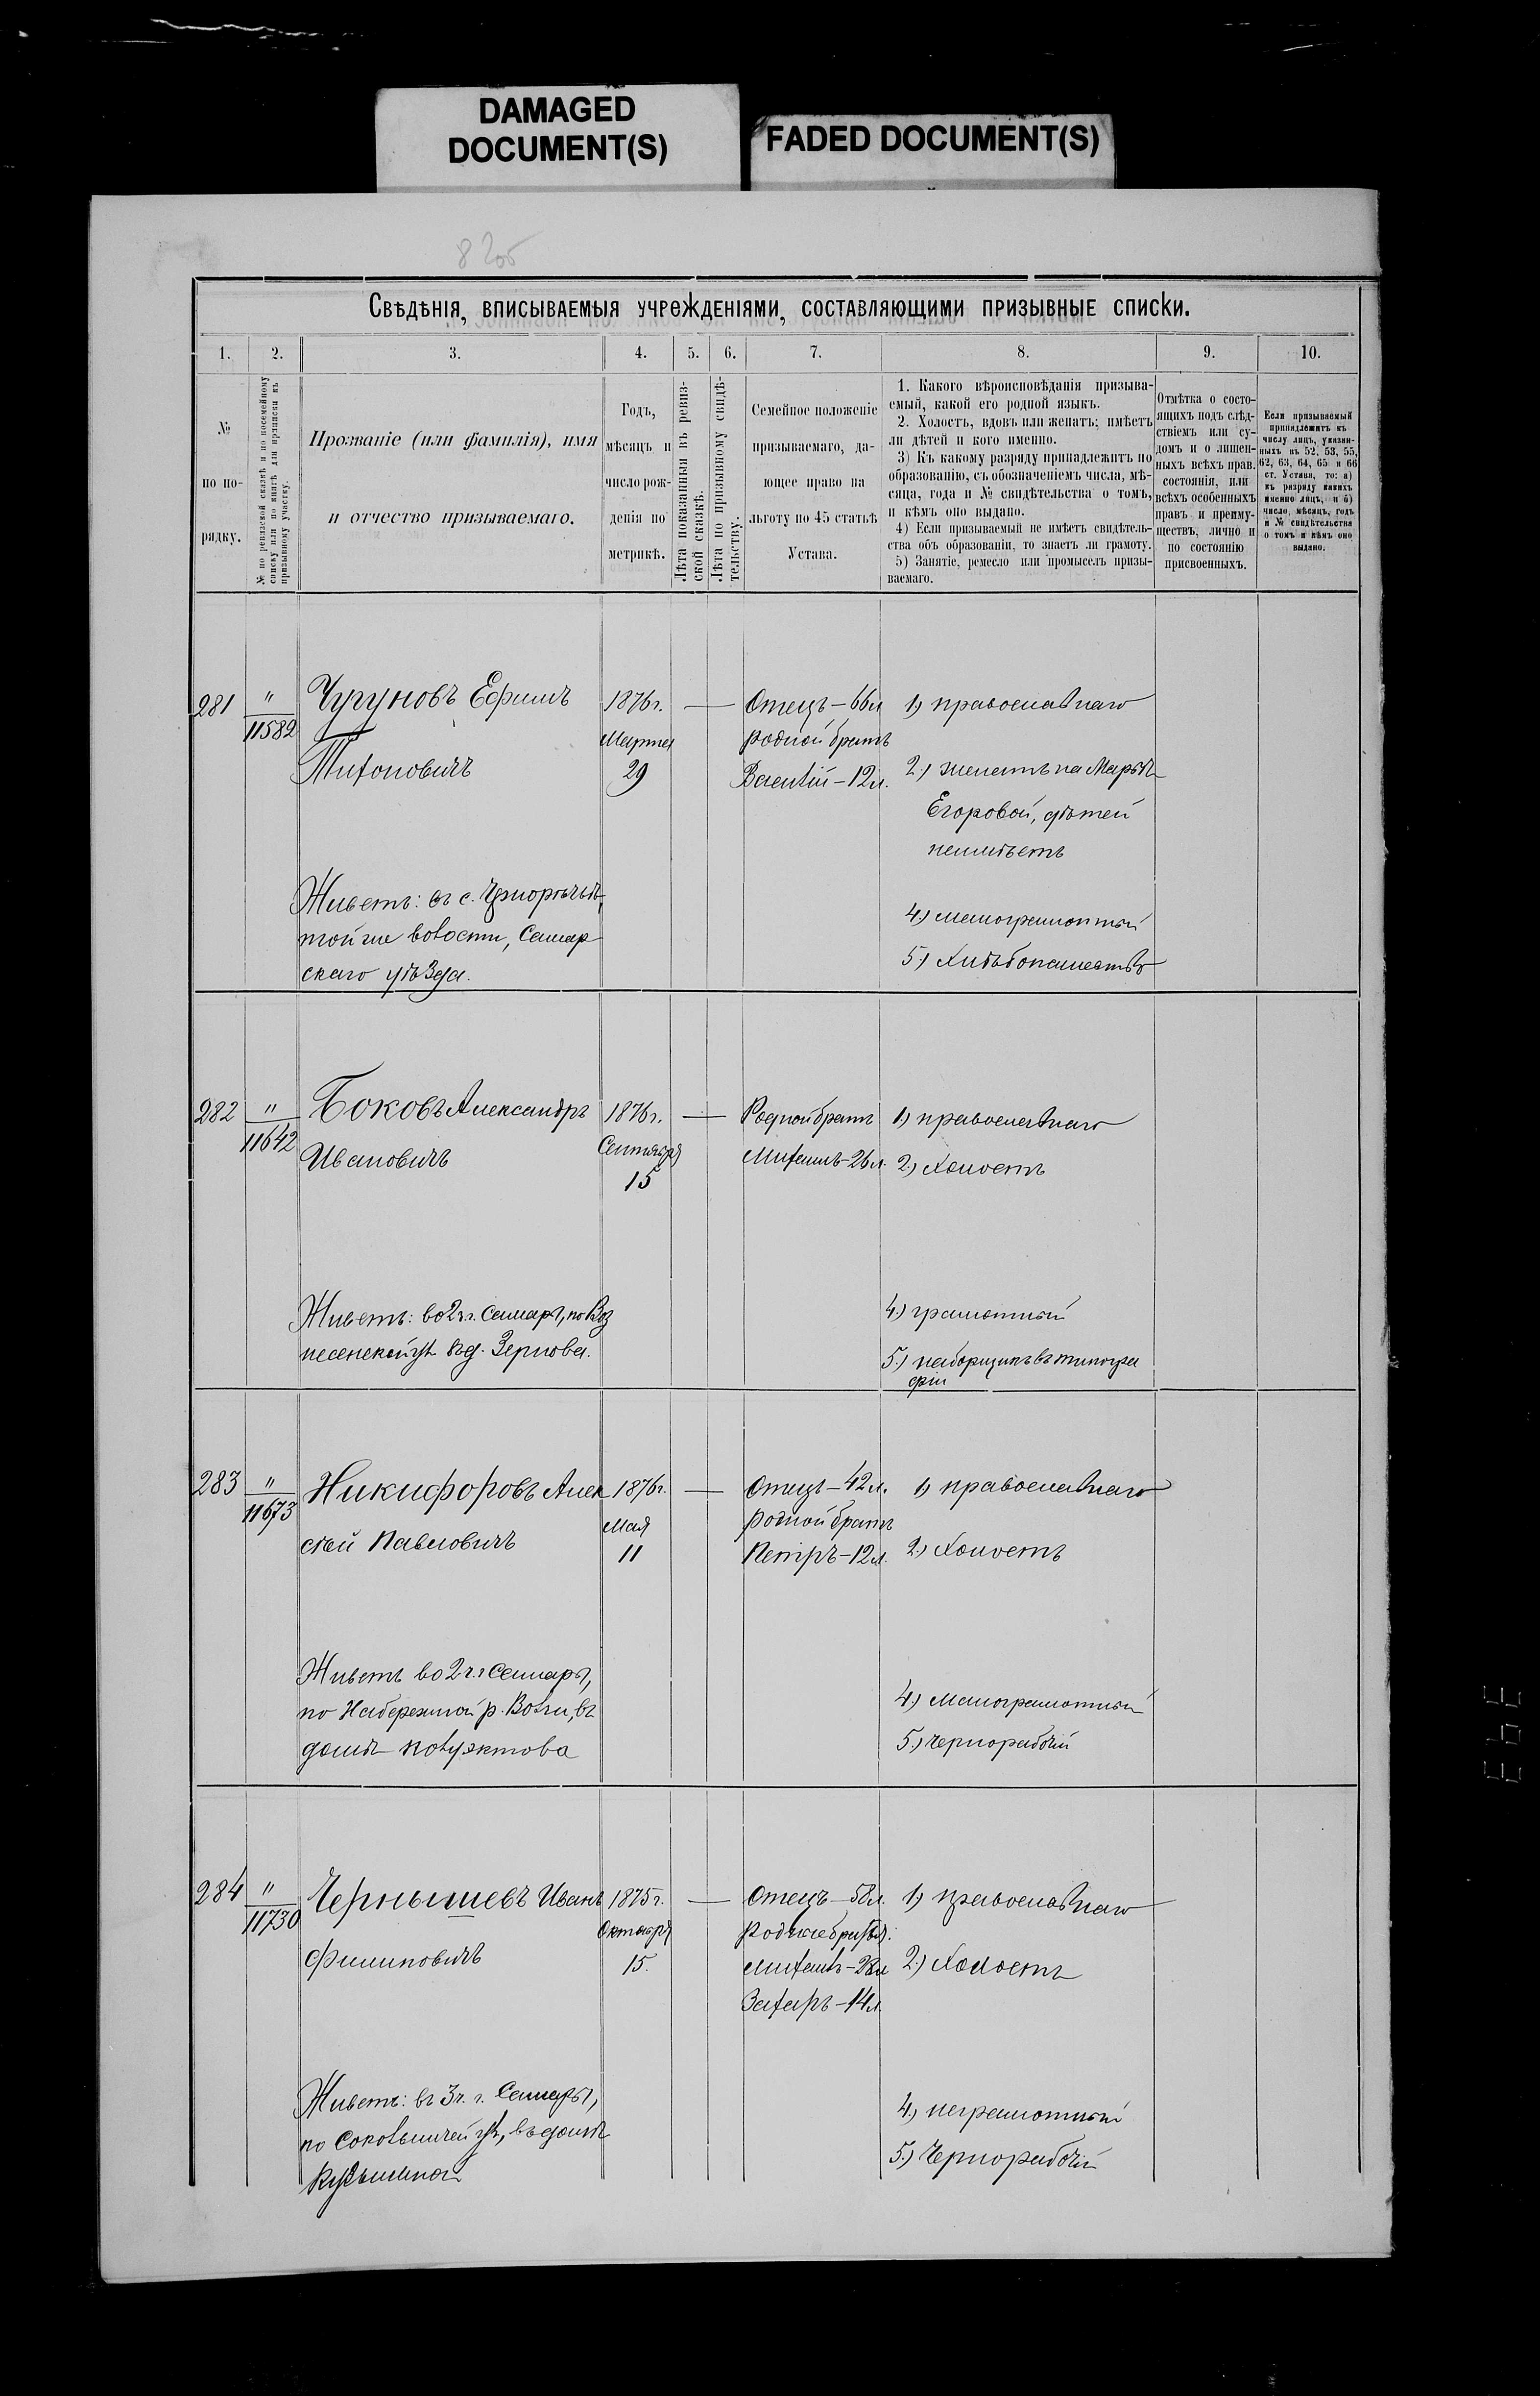 DAMAGED
DOCUMENT(S)
FADED DOCUMENT(S)
Свѣдѣнія, вписываемыя учрежденіями, составляющими призывные списки.
1. 2. 3. 4. 5. 6. 7. 8. 9. 10.
№
по по-
рядку.
№ по ревизской сказкѣ и по посемейному
списку или по книгѣ для приписки къ
призывному участку.
Прозваніе (или фамилія), имя
и отчество призываемаго.
Годъ,
мѣсяцъ и
число рож-
денія по
метрикѣ.
Лѣта показанныя въ ревиз-
ской сказкѣ.
Лѣта по призывному свидѣ-
тельству.
Семейное положеніе
призываемаго, да-
ющее право на
льготу по 45 статьѣ
Устава.
1. Какого вѣроисповѣданія призыва-
емый, какой его родной языкъ.
2. Холостъ, вдовъ или женатъ; имѣетъ
ли дѣтей и кого именно.
3) Къ какому разряду принадлежитъ по
образованію, съ обозначеніемъ числа, мѣ-
сяца, года и № свидѣтельства о томъ,
и кѣмъ оно выдано.
4) Если призываемый не имѣетъ свидѣтель-
ства объ образованіи, то знаетъ ли грамоту.
5) Занятіе, ремесло или промыселъ призы-
ваемаго.
Отмѣтка о состо-
ящихъ подъ слѣд-
ствіемъ или су-
домъ и о лишен-
ныхъ всѣхъ прав.
состоянія, или
всѣхъ особенныхъ
правъ и преиму-
ществъ, лично и
по состоянію
присвоенныхъ.
Если призываемый
принадлежитъ къ
числу лицъ, указан-
ныхъ въ 52, 53, 55,
62, 63, 64, 65 и 66
ст. Устава, то: а)
къ разряду какихъ
именно лицъ, и б)
число, мѣсяцъ, годъ
и № свидѣтельства
о томъ и кѣмъ оно
выдано.
281 " 11582
Чугуновъ Ефимъ
Тихоновичъ
1876 г.
Марта
29
—
Отецъ – 66 л
родной братъ
Василій – 12 л.
1) православнаго
2.) женатъ на Марьѣ
Егоровой, дѣтей
неимѣетъ
Живетъ: въ с. Черноречьѣ,
тойже волости, Самар
скаго уѣзда.
4.) малограмотный
5.) Хлѣбопашество
282 " 11642
Боковъ Александръ
Ивановичъ
1876 г.
Сентября
15
—
Родной братъ
Михаилъ – 26 л.
1) православнаго
2.) Холостъ
Живетъ: во 2 ч. г. Самары, по Воз
несенской ул. въ д. Зернова.
4.) грамотный
5.) наборщикъ въ типогра
фіи
283 " 11673
Никифоровъ Алек
сѣй Павловичъ
1876 г.
Мая
11
—
Отецъ – 42 л.
родной братъ
Петръ – 12 л.
1) православнаго
2.) Холостъ
Живетъ во 2 ч. г. Самары,
по Набережной р. Волги, въ
домѣ Полуэктова
4.) Малограмотный
5.) Чернорабочій
284 " 11730
Чернышевъ Иванъ
Филиповичъ
1875 г.
Октября
15.
—
Отецъ – 58 л.
Родные братья:
Михаилъ – 28 л
Захаръ – 14 л.
1) православнаго
2.) Холостъ
Живетъ: въ 3 ч. г. Самары,
по Соковьничей ул., въ домѣ
4.) неграмотный
5.) Чернорабочій